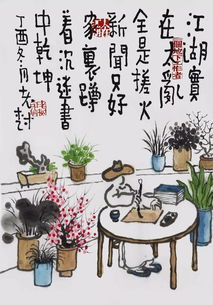 江湖實
在太亂
全是搓火
新聞只好
家裏蹲
着沉謎書
中乾坤
丁酉冬月老樹